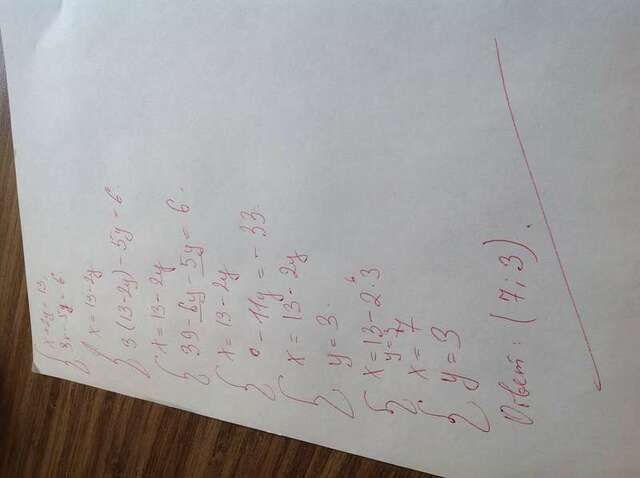 x+2y=13
3x-5y=6
x=13-2y
3(13-2y)-5y=6.
x=13-2y
39-6y-5y=6.
x=13-2y
-11y=-33.
x=13-2y
y=3.
x=13-2·3
y=3
x=7
y=3
Ответ: (7;3).